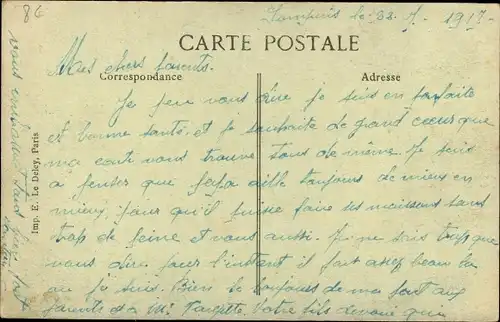 86
le 22. 7. 1917
CARTE POSTALE
Mes chers parents.
Correspondance
Adresse
Je peu vous dire Je suis en parfaite
est bonne santé. et Je souhaite de grand cœur que
ma carte vous trouve tous de même. Je suis
a penser que papa aille toujours de mieux en
mieux, pour qu'il puisse faire ses moissons sans
trop de peine et vous aussi. Je ne sais trop que
vous dire pour l'instant il fait assez beau la
ou je suis. Bien le toujours de ma part aux
parents d a Mr Votre fils devoué que
vous
Imp. E. Le Deley, Paris